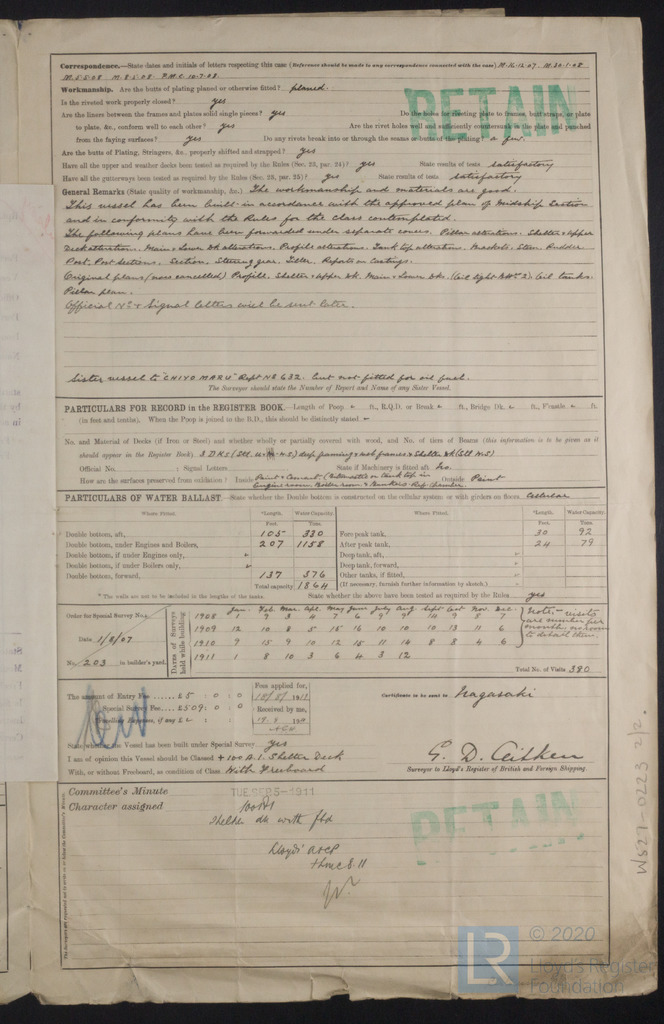 Correspondence.—State dates and initials of letters respecting this case (Reference should be made to any correspondence connected with the case) M. 16.12.07 M. 30.1.08
M. 5.5.08 M. 8.5.08 P.M.C. 10.7.08
Workmanship. Are the butts of plating planed or otherwise fitted? planed.
Is the riveted work properly closed? yes
Are the liners between the frames and plates solid single pieces? yes Do the holes for riveting plate to frames, butt straps, or plate
to plate, &c., conform well to each other? yes Are the rivet holes well and sufficiently countersunk in the plate and punched
from the faying surfaces? yes Do any rivets break into or through the seams or butts of the plating? a few.
Are the butts of Plating, Stringers, &c., properly shifted and strapped? yes
Have all the upper and weather decks been tested as required by the Rules (Sec. 23, par. 24)? yes State results of tests satisfactory
Have all the gutterways been tested as required by the Rules (Sec. 28, par. 25)? yes State results of tests satisfactory
RETAIN
General Remarks (State quality of workmanship, &c.) The workmanship and materials are good.
This vessel has been built in accordance with the approved plan of Midship Section
and in conformity with the Rules for the class contemplated.
The following plans have been forwarded under separate cover, Pillar alterations. Shelter & upper
Deck alteration. Main & Lower dk alterations. Profile alterations. Tank top alterations. Brackets. Stem. Rudder
Post. Section. Steering gear. Tiller. Reports on Castings.
Original plans (now cancelled) Profile. Shelter & upper dk. Main & Lower dks. (Oil tight Bhds 2). Oil tanks.
Pillar plan.
Official No. & Signal letters will be sent later.
Sister vessel to "CHIYO MARU" Rept No 632. but not fitted for oil fuel.
The Surveyor should state the Number of Report and Name of any Sister Vessel.
PARTICULARS FOR RECORD in the REGISTER BOOK.—Length of Poop ft., R.Q.D. or Break ft., Bridge Dk. ft., F'castle ft.
(in feet and tenths). When the Poop is joined to the B.D., this should be distinctly stated
No. and Material of Decks (if Iron or Steel) and whether wholly or partially covered with wood, and No. of tiers of Beams (this information is to be given as it
should appear in the Register Book). 3 Dks deep framing & web frames & Shelter dk
Official No. ; Signal Letters State if Machinery is fitted aft No.
How are the surfaces preserved from oxidation? Inside Paint & Cement. Outside Paint
PARTICULARS OF WATER BALLAST.—State whether the Double bottom is constructed on the cellular system or with girders on floors. Cellular
Where Fitted. *Length. Water Capacity. Where Fitted. *Length. Water Capacity.
Feet. Tons. Feet. Tons.
Double bottom, aft, 105 330 Fore peak tank, 30 92
Double bottom, under Engines and Boilers, 207 1158 After peak tank, 24 79
Double bottom, if under Engines only, Deep tank, aft,
Double bottom, if under Boilers only, Deep tank, forward,
Double bottom, forward, 137 376 Other tanks, if fitted,
Total capacity 1864 (If necessary, furnish further information by sketch.)
* The wells are not to be included in the lengths of the tanks. State whether the above have been tested as required by the Rules yes
Order for Special Survey No.
Date 1/8/07
No. 203 in builder's yard.
Dates of Surveys held while building
Jan. Feb. Mar. Apl. May June July Aug. Sept Oct. Nov. Dec.
1908 1 9 3 4 7 6 9 9 14 9 8 7
1909 12 10 8 5 15 16 10 10 10 13 11 6
1910 9 15 9 10 12 15 11 14 8 8 4 6
1911 1 8 10 3 6 4 3 12
Note,- visits are number per month, no room to detail them.
Total No. of Visits 380
The amount of Entry Fee £5 : 0 : 0
Special Survey Fee £509 : 0 : 0
Travelling Expenses, if any £ : :
Fees applied for,
Received by me,
Certificate to be sent to Nagasaki
State whether the Vessel has been built under Special Survey yes
I am of opinion this Vessel should be Classed + 100 A.1. Shelter Deck
With, or without Freeboard, as condition of Class With Freeboard
G. D. Aitken
Surveyor to Lloyd's Register of British and Foreign Shipping.
Committee's Minute TUE SEP 5 - 1911
Character assigned 100A1
Shelter dk with fbd
Lloyd's A&CP
+LMC 8.11
RETAIN
The Surveyors are requested not to write on or below the Committee's Minute.
WS27-0223 2/2
LR
© 2020
Lloyd's Register
Foundation